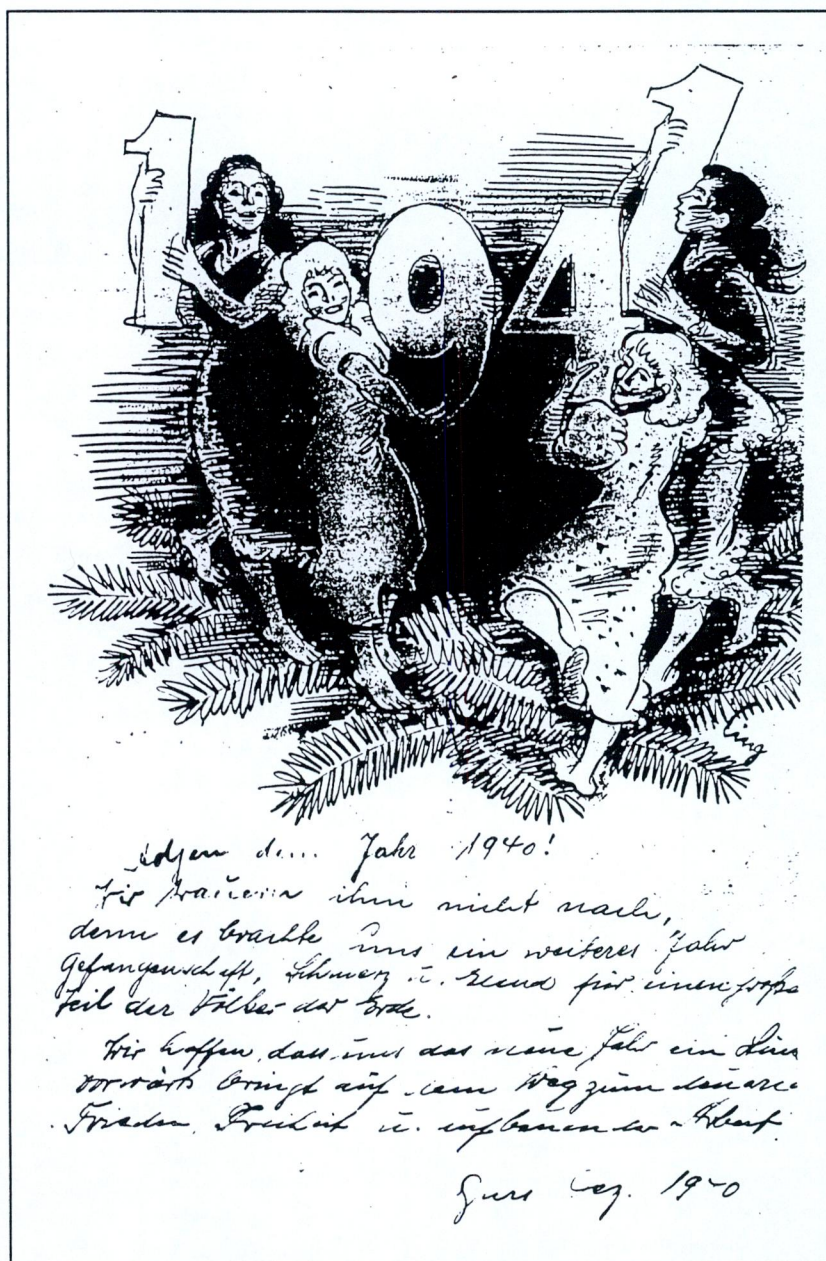 1941
ling
Adjeu dem Jahr 1940!
Wir trauern ihm nicht nach,
denn es brachte uns ein weiteres Jahr
Gefangenschaft, Schmerz u. Elend für einen große
Teil der Völker der Erde.
Wir hoffen, dass uns das neue Jahr ein
vorwärts bringt auf dem Weg zum
Frieden, Freiheit u. aufbauender Arbeit.
Gurs Dez. 1940